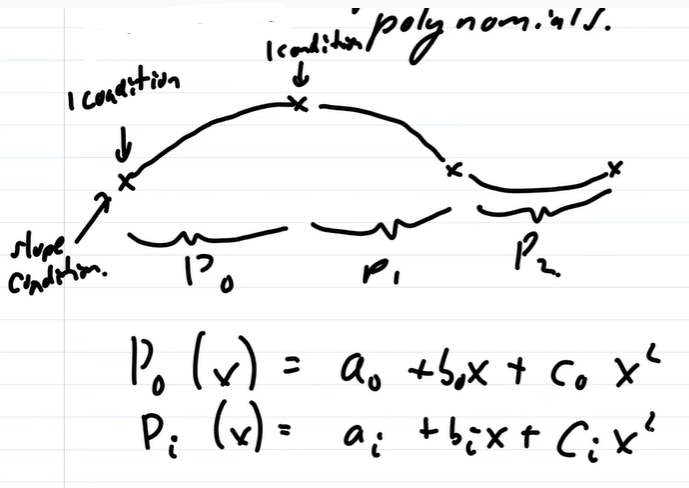 polynomials.
1 condition
1 condition
slope
condition.
P₀ P₁ P₂.
P₀ (x) = a₀ + b₀x + c₀ x²
Pᵢ (x) = aᵢ + bᵢx + Cᵢ x²